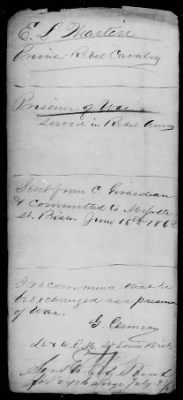 E. L. Martin
Private Rebel Cavalry
Prisoner of War
Served in Rebel Army
Sent from C. Girardeau
& Committed to Myrtle
St. Prison June 10th 1863
I recommend that he
be exchanged as a prisoner
of War.
G.
St Louis Dist
for exchange July 3